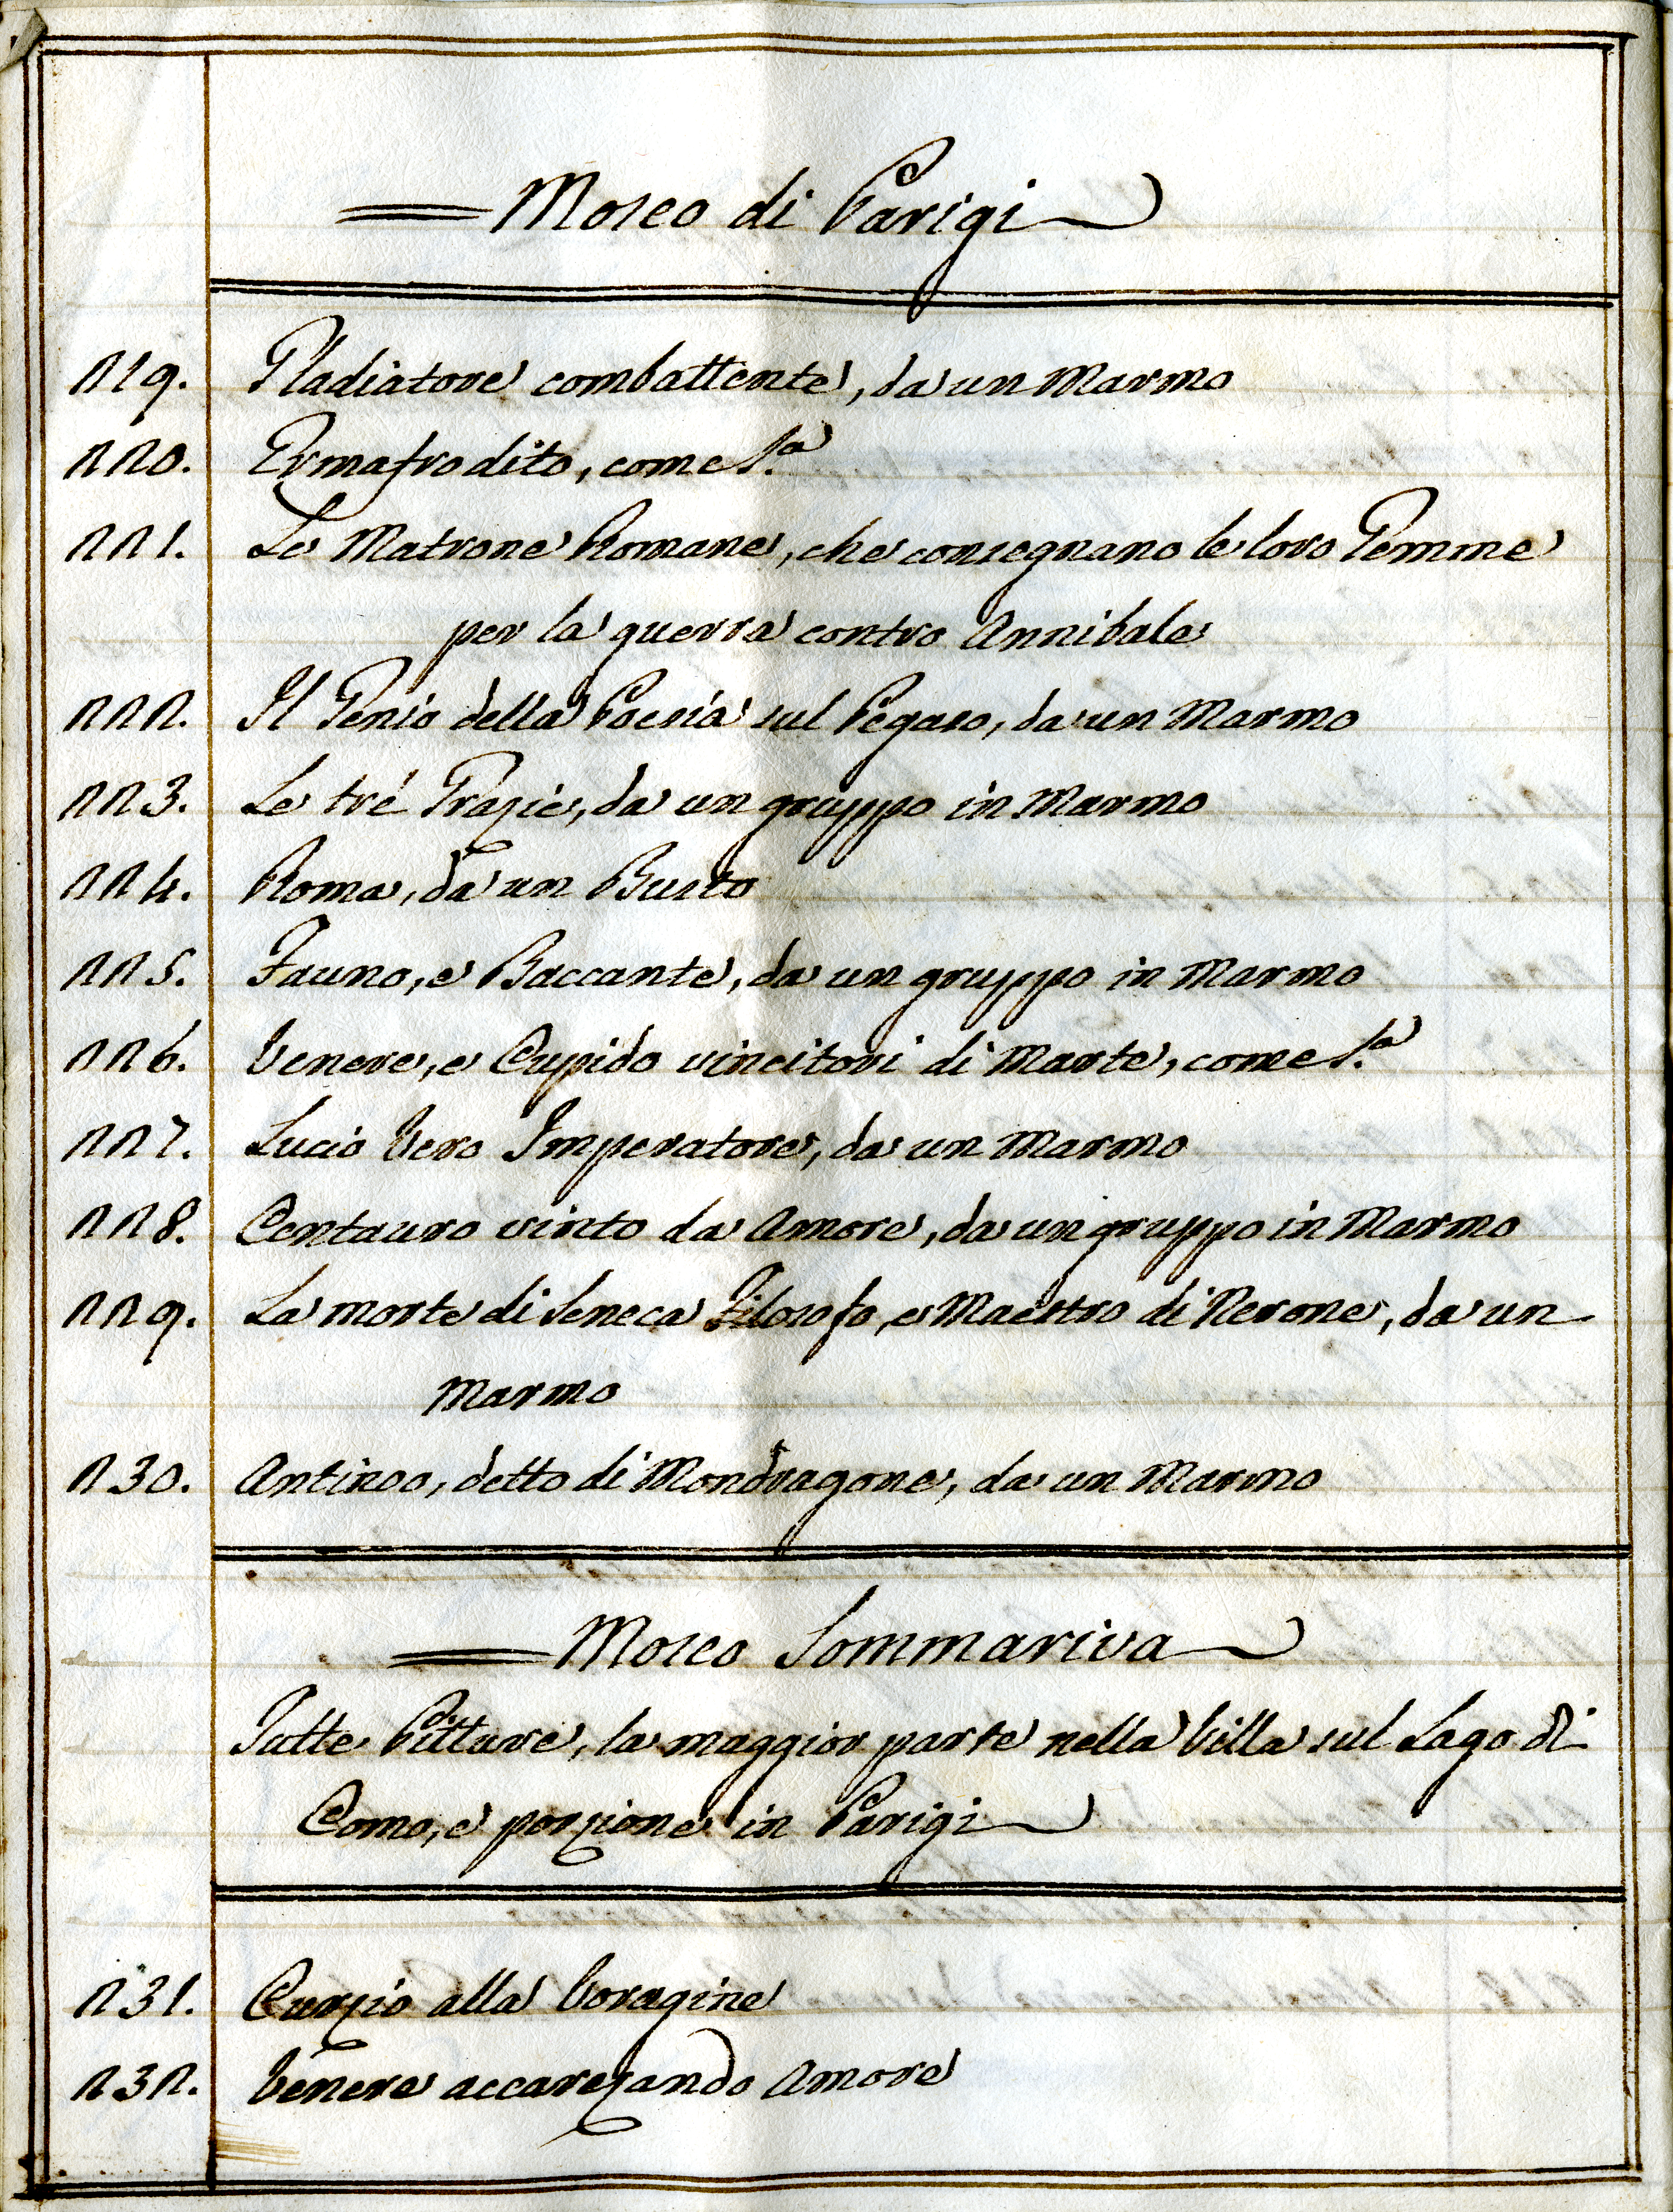 Museo di Parigi
219. Gladiatore combattente, da un Marmo
220. Ermafrodito, come s.a
221. Le Matrone Romane, che consegnano le loro Gemme
per la guerra contro Annibale
222. Il Genio della Poesia sul Pegaso, da un Marmo
223. Le tré Grazie, da un gruppo in Marmo
224. Roma, da un Busto
225. Fauno, e Baccante, da un gruppo in Marmo
226. Venere, e Cupido vincitori di Marte, come s.a
227. Lucio Vero Imperatore, da un Marmo
228. Centauro vinto da Amore, da un gruppo in Marmo
229. La morte di Seneca Filosofo, e Maestro di Nerone, da un
Marmo
230. Antinoo, detto di Mondragone, da un Marmo
Museo Sommariva
Tutte Pitture, la maggior parte nella Villa sul Lago di
Como, e porzione in Parigi
231. Curzio alla Voragine
232. Venere accarezando Amore